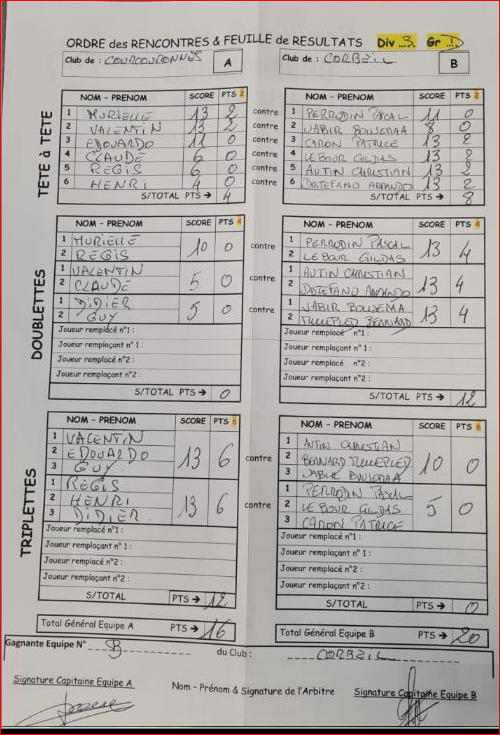 ORDRE des RENCONTRES & FEUILLE de RESULTATS Div 3 Gr D
Club de : COURCOURONNES A Club de : CORBEIL B
TETE à TETE
NOM - PRENOM SCORE PTS 2 NOM - PRENOM SCORE PTS 2
1 MURIELLE 13 2 contre 1 PERRODIN PASCAL 11 0
2 VALENTIN 13 2 contre 2 JABIR BOUJEMAA 8 0
3 EDOUARDO 11 0 contre 3 CARON PATRICE 13 2
4 CLAUDE 6 0 contre 4 LE BOUR GILDAS 13 2
5 REGIS 6 0 contre 5 AUTIN CHRISTIAN 13 2
6 HENRI 4 0 contre 6 DISTEFANO ARMANDO 13 2
S/TOTAL PTS → 4 S/TOTAL PTS → 8
DOUBLETTES
NOM - PRENOM SCORE PTS 4 NOM - PRENOM SCORE PTS 4
1 MURIELLE 10 0 contre 1 PERRODIN PASCAL 13 4
2 REGIS 2 LE BOUR GILDAS
1 VALENTIN 5 0 contre 1 AUTIN CHRISTIAN 13 4
2 CLAUDE 2 DISTEFANO ARMANDO
1 DIDIER 5 0 contre 1 JABIR BOUJEMA 13 4
2 GUY 2 BERNARD
Joueur remplacé n°1 : Joueur remplacé n°1 :
Joueur remplaçant n° 1 : Joueur remplaçant n° 1 :
Joueur remplacé n°2 : Joueur remplacé n°2 :
Joueur remplaçant n°2 : Joueur remplaçant n°2 :
S/TOTAL PTS → 0 S/TOTAL PTS → 12
TRIPLETTES
NOM - PRENOM SCORE PTS 6 NOM - PRENOM SCORE PTS 6
1 VALENTIN 13 6 contre 1 AUTIN CHRISTIAN 10 0
2 EDOUARDO 2 BERNARD
3 GUY 3 JABIR BOUJEMAA
1 REGIS 13 6 contre 1 PERRODIN PASCAL 5 0
2 HENRI 2 LE BOUR GILDAS
3 DIDIER 3 CARON PATRICE
Joueur remplacé n°1 : Joueur remplacé n°1 :
Joueur remplaçant n° 1 : Joueur remplaçant n° 1 :
Joueur remplacé n°2 : Joueur remplacé n°2 :
Joueur remplaçant n°2 : Joueur remplaçant n°2 :
S/TOTAL PTS → 12 S/TOTAL PTS → 0
Total Général Equipe A PTS → 16 Total Général Equipe B PTS → 20
Gagnante Equipe N° B du Club : CORBEIL
Signature Capitaine Equipe A Nom - Prénom & Signature de l'Arbitre Signature Capitaine Equipe B